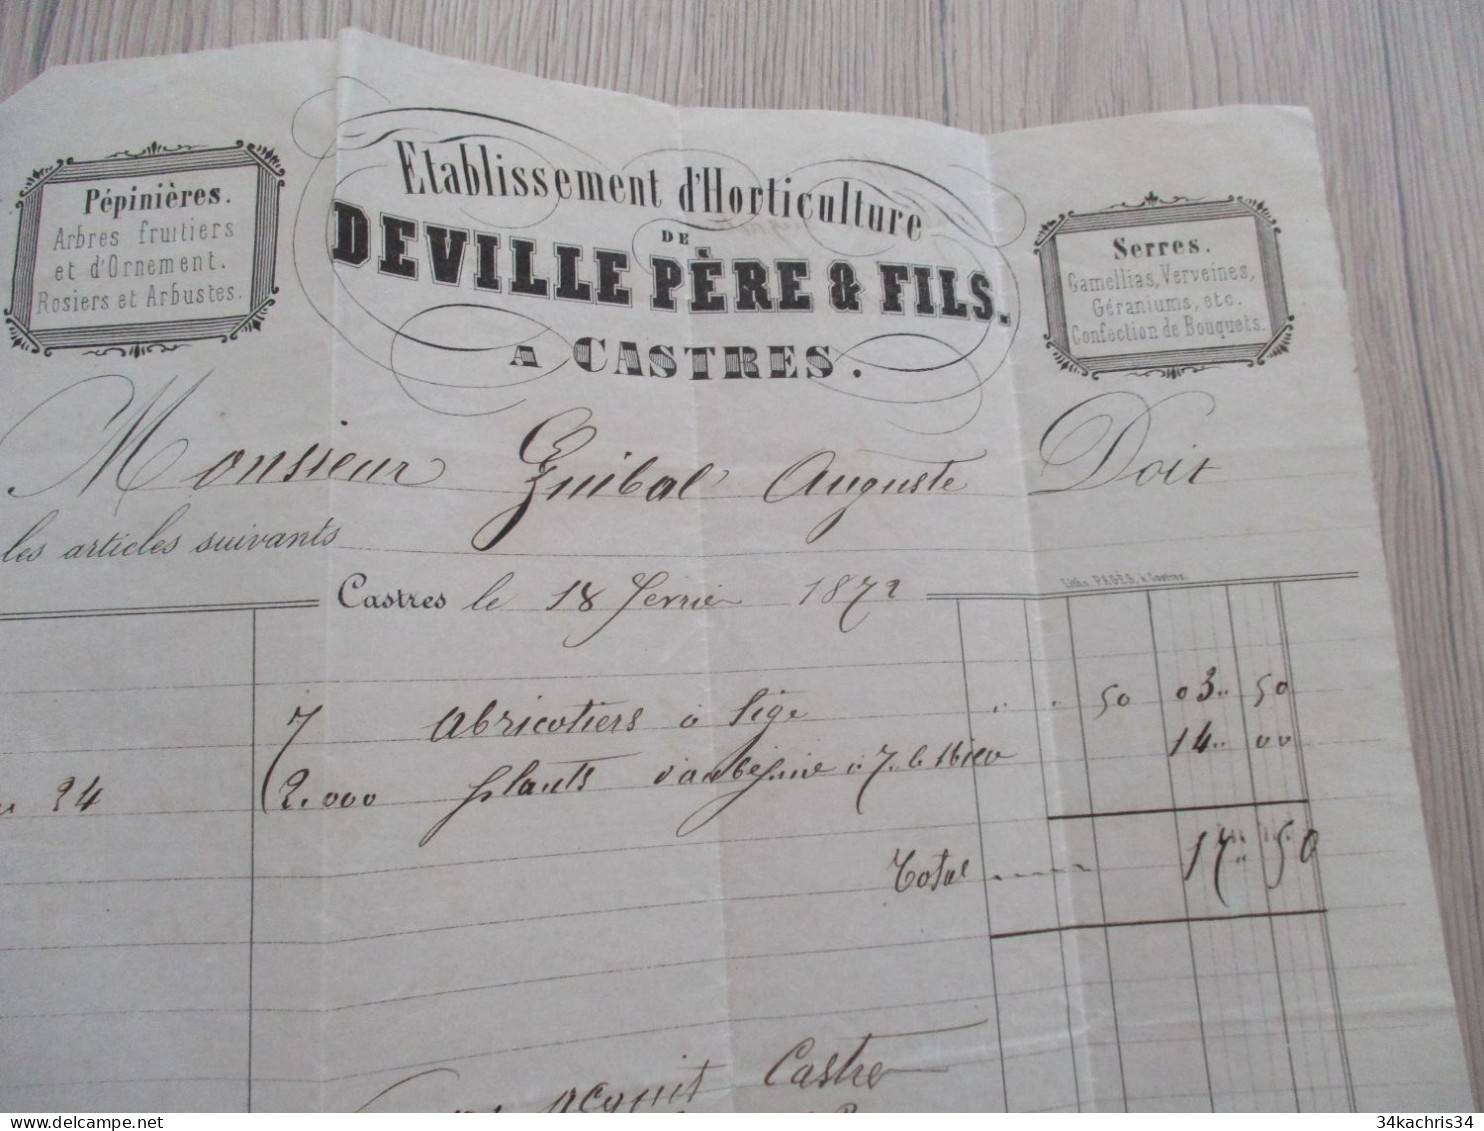 Etablissement d'Horticulture
DE
DEVILLE PÈRE & FILS.
A CASTRES.
Pépinières.
Arbres fruitiers
et d'Ornement.
Rosiers et Arbustes.
Serres.
Camellias, Verveines,
Géraniums, etc.
Confection de Bouquets.
Monsieur Guibal Auguste Doit
les articles suivants
Lith. PAGÈS, à Castres
Castres le 18 février 1872
7 abricotiers à tige 50 03.. 50
24 2.000 plants d'aubépine à 7.. le 14.. 00
Total 17 50
acquit Castre
34kachris34
34kachris34